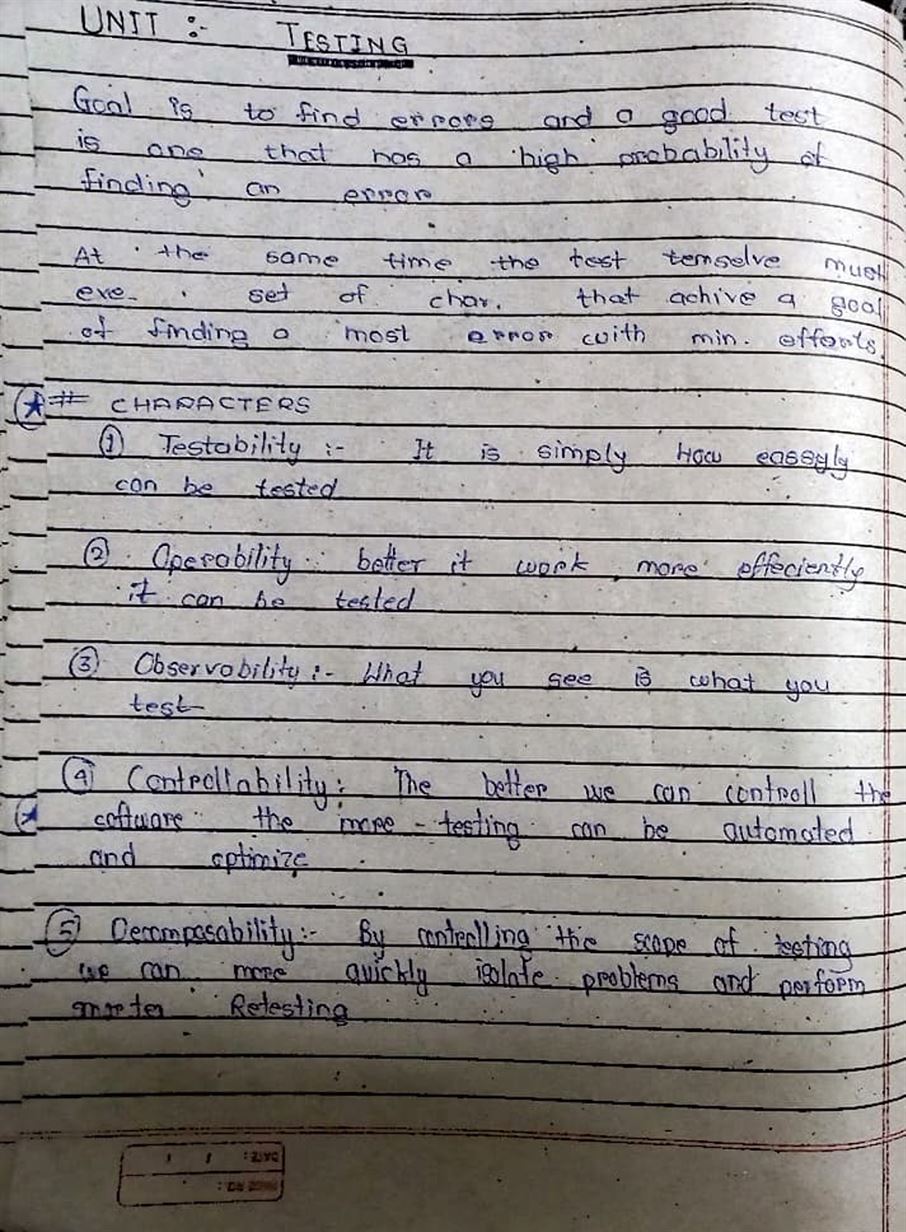 UNIT :- TESTING
Goal is to find errors and a good test
is one that has a high probability of
finding an error
At the same time the test temselve must
exe. set of char. that achive a goal
of finding a most error with min. efforts.
# CHARACTERS
① Testability :- It is simply How eassyly
can be tested
② Operability : better it work more effeciently
it can be tested
③ Observability :- What you see is what you
test
④ Controllability : The better we can controll the
software the more testing can be automated
and optimize
⑤ Decomposability :- By controlling the scope of testing
we can more quickly isolate problems and perform
Retesting
DATE : / /
PAGE NO :